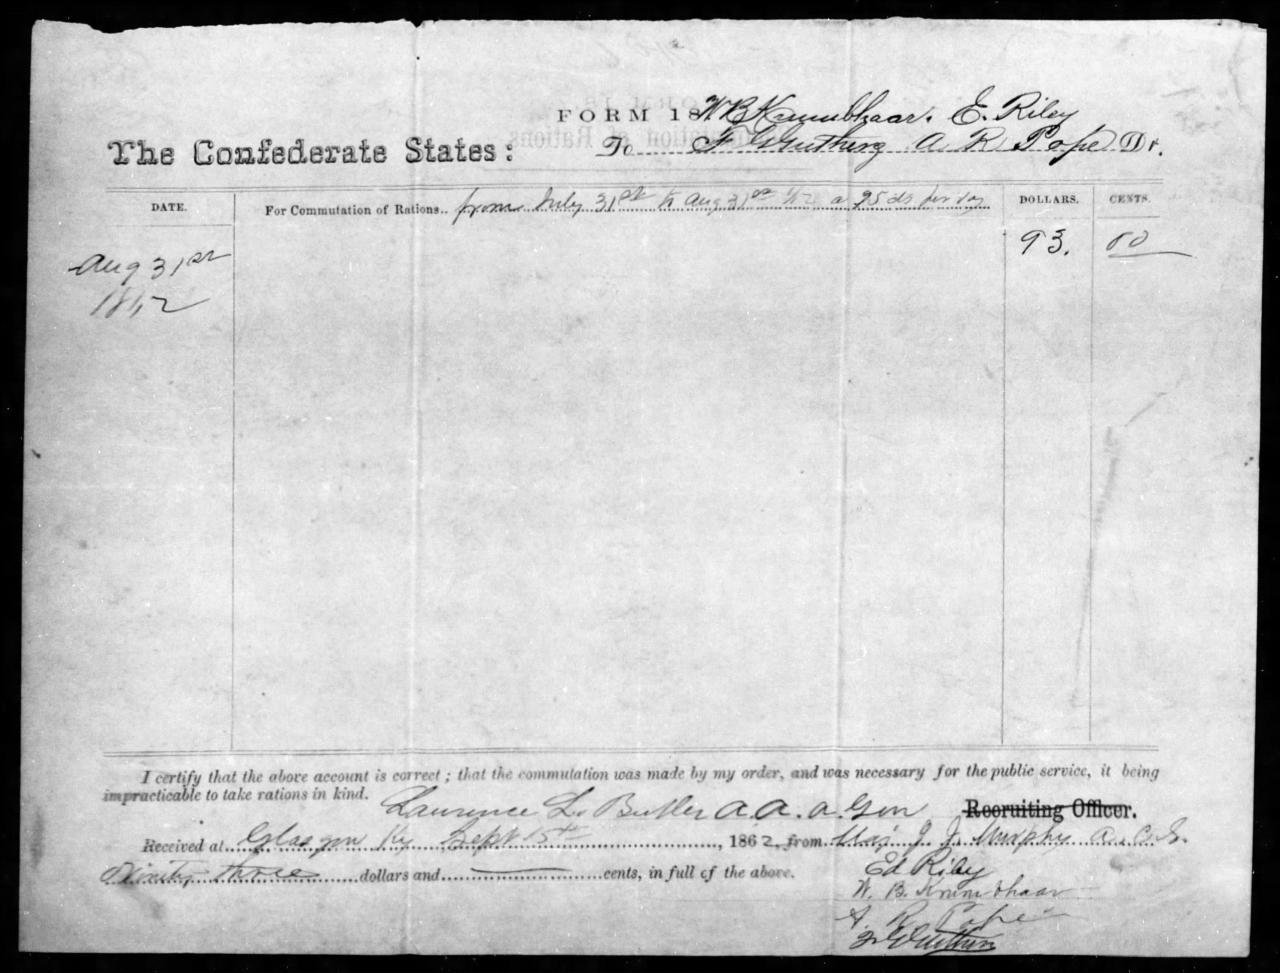 FORM 18 W B Krumbhaar. E. Riley
The Confederate States: To A R Pope Dr.
DATE. For Commutation of Rations.. from July 31st to Aug 31st a 75 cts per day DOLLARS. CENTS.
93. 00
Aug 31st
1862
I certify that the above account is correct; that the commutation was made by my order, and was necessary for the public service, it being
impracticable to take rations in kind.
Laurence L. Butler a. a. a. Gen Recruiting Officer.
Received at Glasgow Ky Sept 15th, 1862, from Maj J. J. Murphy A. C. S.
Ninety three dollars and cents, in full of the above.
Ed Riley
W. B. Krumbhaar
A. R. Pope